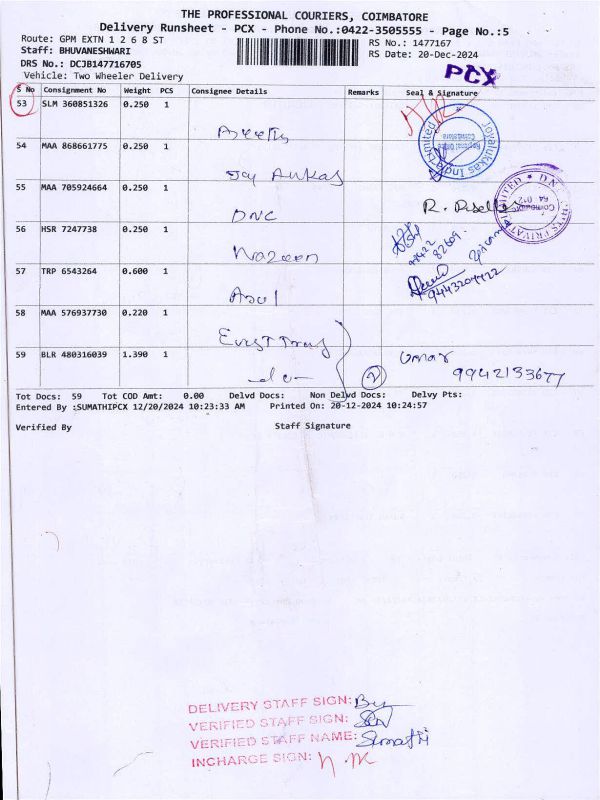 THE PROFESSIONAL COURIERS, COIMBATORE
Delivery Runsheet - PCX - Phone No.:0422-3505555 - Page No.:5
Route: GPM EXTN 1 2 6 8 ST
RS No.: 1477167
Staff: BHUVANESHWARI
RS Date: 20-Dec-2024
DRS No.: DCJB147716705
Vehicle: Two Wheeler Delivery
PCX
S No Consignment No Weight PCS Consignee Details Remarks Seal & Signature
53 SLM 360851326 0.250 1
54 MAA 868661775 0.250 1
Joyalukkas India Limited
Regional Office
Coimbatore
55 MAA 705924664 0.250 1
DNC
R.
56 HSR 7247738 0.250 1
Nazeen
57 TRP 6543264 0.600 1
Asul
9443204422
58 MAA 576937730 0.220 1
59 BLR 480316039 1.390 1
-do-
2
Umar
9942133677
Tot Docs: 59 Tot COD Amt: 0.00 Delvd Docs: Non Delvd Docs: Delvy Pts:
Entered By :SUMATHIPCX 12/20/2024 10:23:33 AM Printed On: 20-12-2024 10:24:57
Verified By Staff Signature
DELIVERY STAFF SIGN:
VERIFIED STAFF SIGN:
VERIFIED STAFF NAME: Sumathi
INCHARGE SIGN: